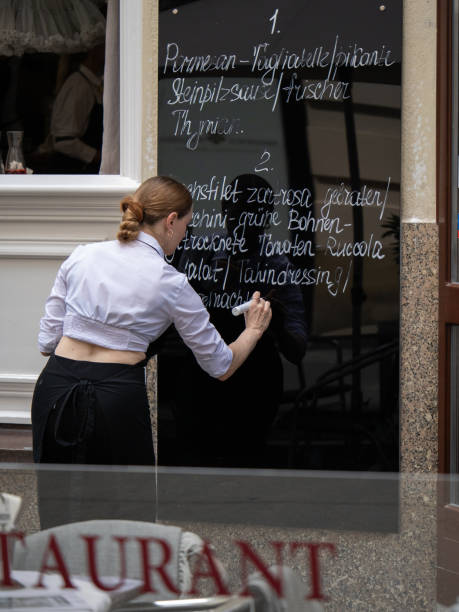 1.
Parmesan-Tagliatelle/pikante
Steinpilzsauce/frischer
Thymian.
2.
zart-rosa gebraten/
grüne Bohnen-
getrocknete Tomaten-Ruccola
Salat/Tahindressing/
TAURANT